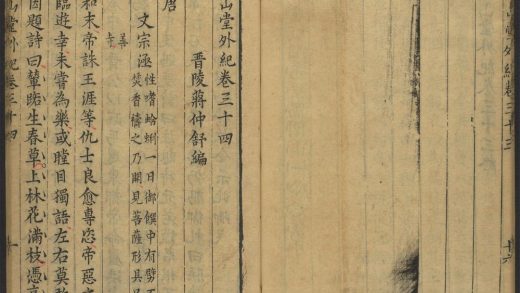 外紀卷三十三
十六
山堂外紀卷三十四
晋陵蔣仲舒編
唐
文宗涵
性嗜蛤蜊一日御饌中有劈不
焚香禱之乃開見菩薩形具
善寺
和末帝誅王涯等仇士良愈專恣帝惡
臨遊幸未嘗為樂或瞠目獨語左右莫
因題詩曰輦路生春草上林花滿枝憑
山堂外紀卷三十四